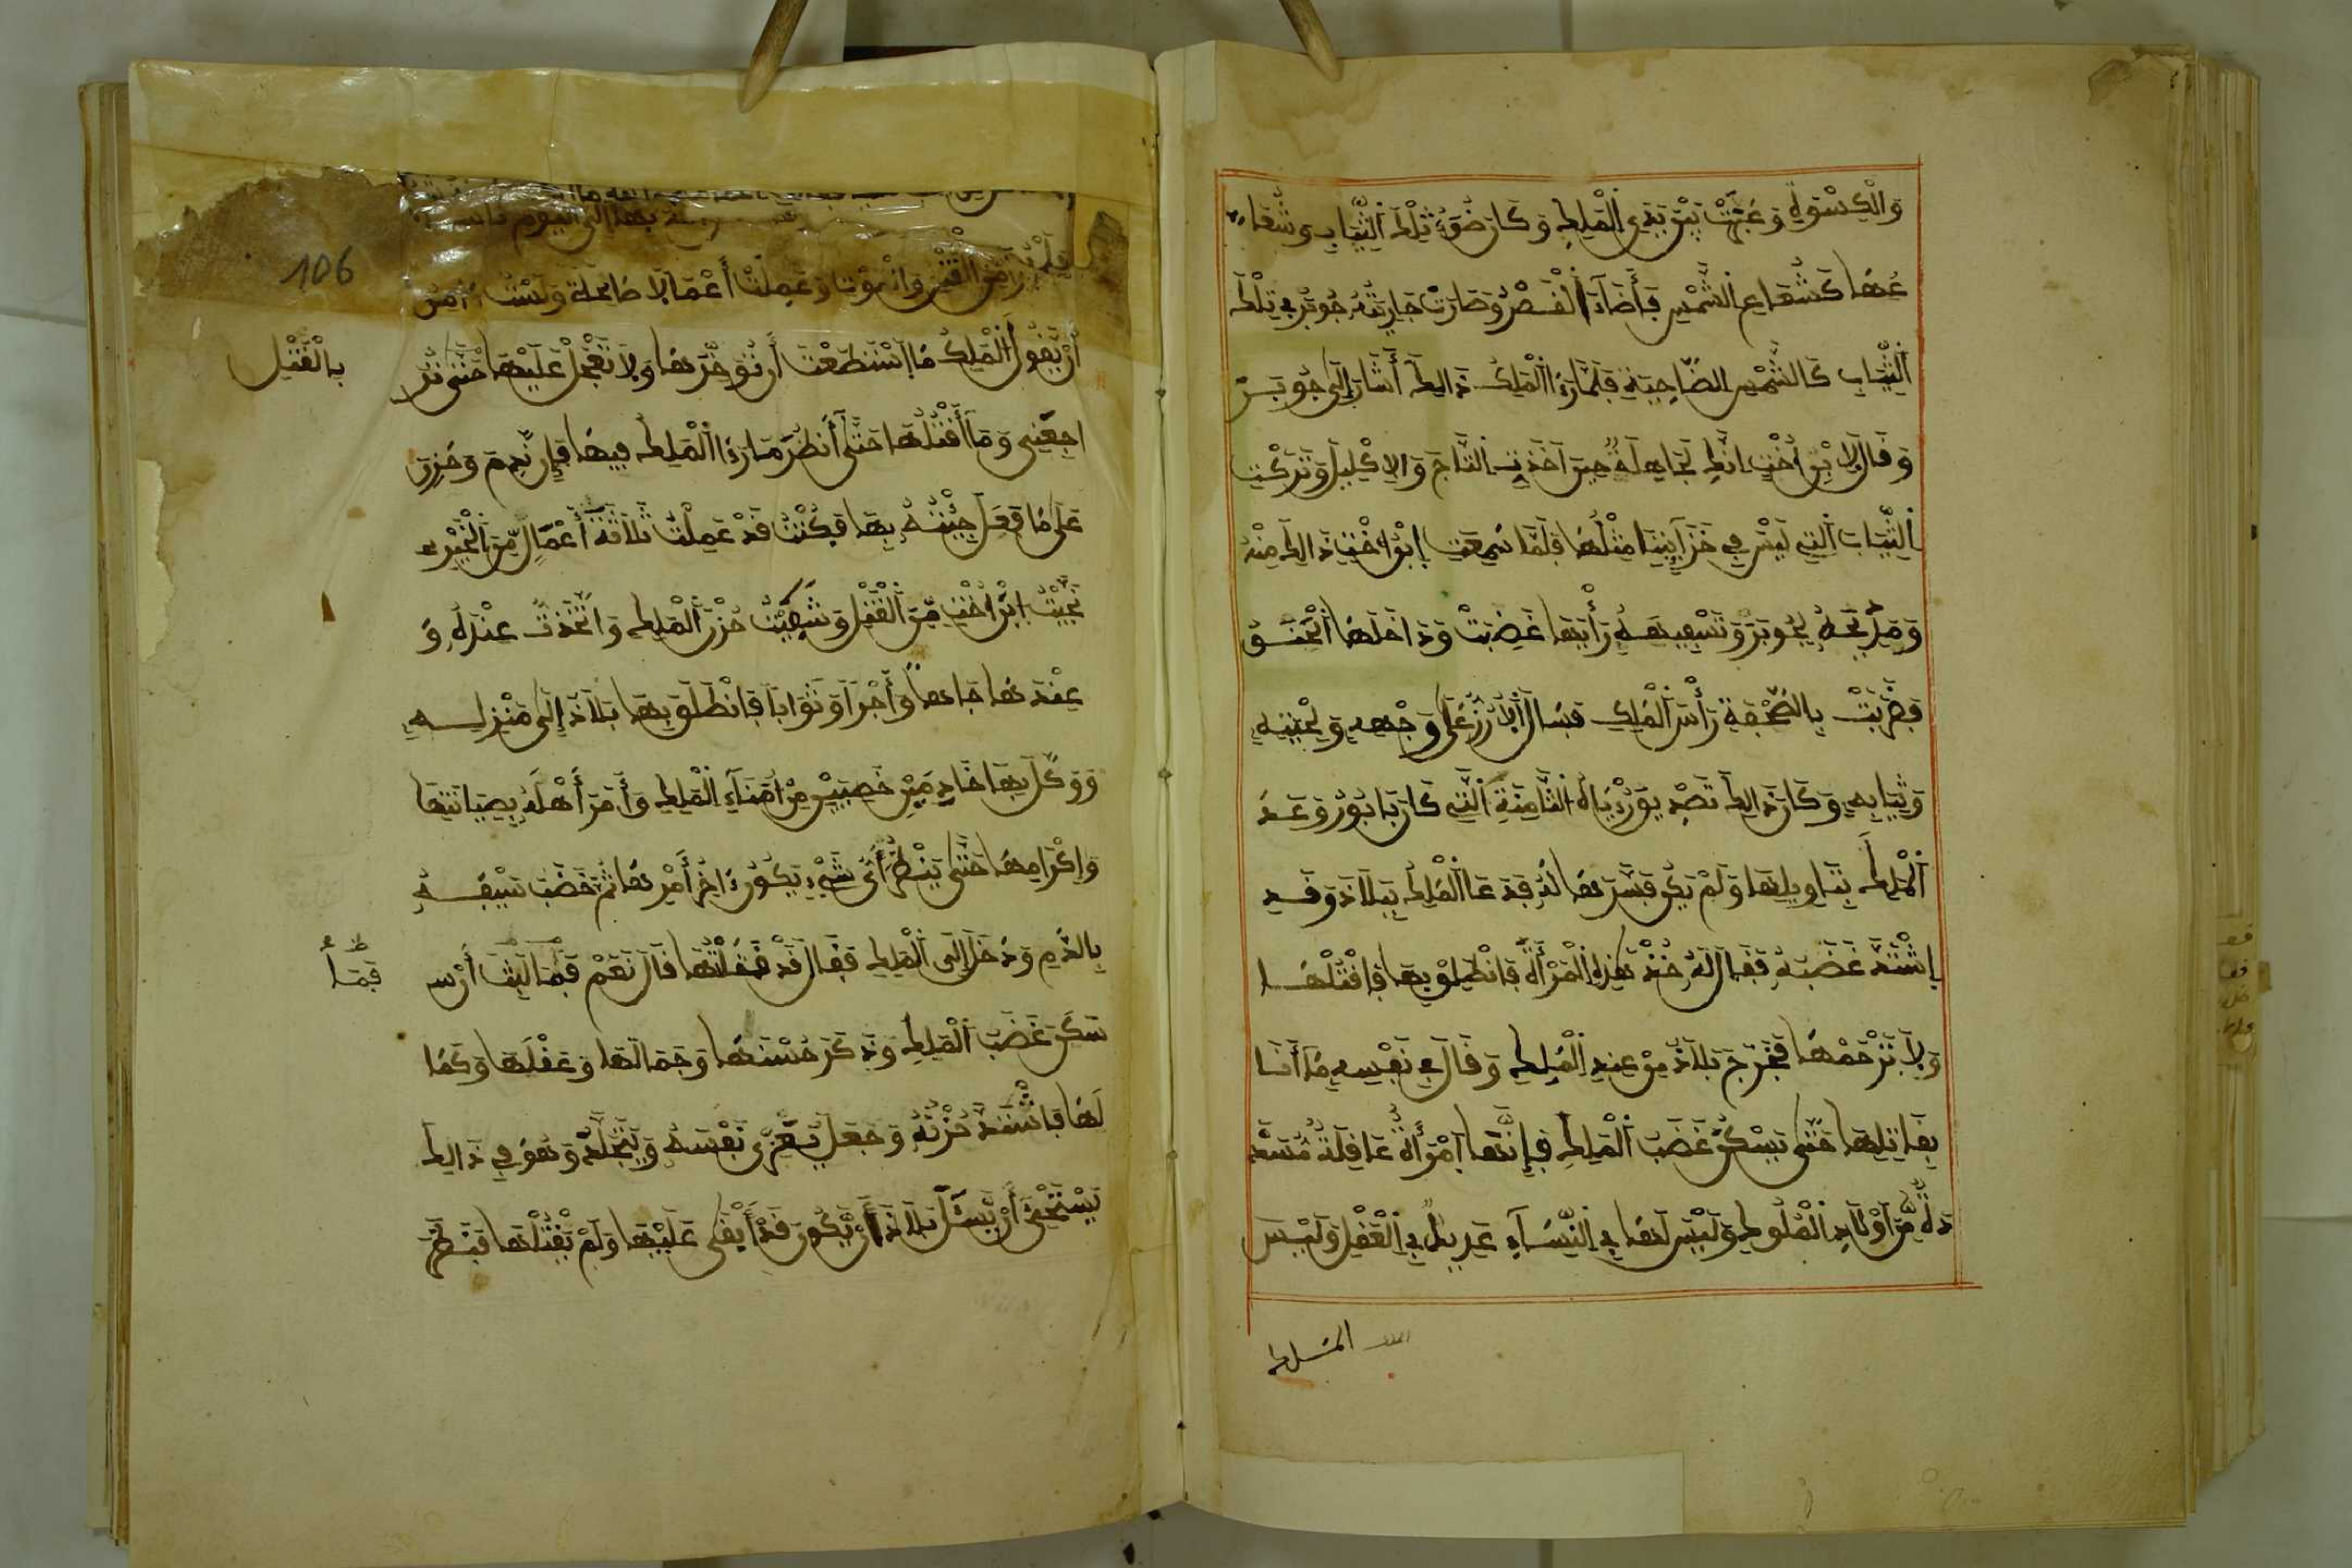 وَالْكِسْوَةِ وَعَبَرَتْ بَيْنَ يَدَيِ الْمَلِكِ وَكَانَ ضَوْءُ تِلْكَ الثِّيَابِ وَشُعَا
عُهَا كَشُعَاعِ الشَّمْسِ فَأَضَاءَ الْقَصْرُ وَصَارَتْ جَارِيَتُهُ جُوبَرُ فِي تِلْكَ
الثِّيَابِ كَالشَّمْسِ الضَّاحِيَةِ فَلَمَّا رَءَا الْمَلِكُ ذَالِكَ أَشَارَ إِلَى جُوبَرَ
وَقَالَ لِابْنِ أُخْتِ إِنَّكِ لَجَاهِلَةٌ حِينَ أَخَذْتِ التَّاجَ وَالِاكْلِيلَ وَتَرَكْتِ
الثِّيَابَ الَّتِي لَيْسَ فِي خَزَآئِنِنَا مِثْلُهَا فَلَمَّا سَمِعَتْ إِبْنُ أُخْتِ ذَالِكَ مِنْهُ
وَمَدْحَهُ لِجُوبَرَ وَتَسْفِيهَهُ رَأْيَهَا غَضِبَتْ وَدَاخَلَهَا الْحَنَقُ
فَضَرَبَتْ بِالصَّحْفَةِ رَأْسَ الْمَلِكِ فَسَالَ الْأُرْزُ عَلَى وَجْهِهِ وَلِحْيَتِهِ
وَثِيَابِهِ وَكَانَ ذَالِكَ تَصْدِيقَ رُؤْيَاهُ الثَّامِنَةِ الَّتِي كَانَ بَابُورُ وَعَدَ
الْمَلِكَ بِتَاوِيلِهَا وَلَمْ يَكُنْ فَسَّرَهَا لَهُ فَدَعَا الْمَلِكُ بِبَلَاذَ وَقَدِ
اشْتَدَّ غَضَبُهُ فَقَالَ لَهُ خُذْ هَذِهِ الْمَرْأَةَ فَانْطَلِقْ بِهَا فَاقْتُلْهَا
وَلَا تَرْحَمْهَا فَخَرَجَ بَلَاذُ مِنْ عِنْدِ الْمَلِكِ وَقَالَ فِي نَفْسِهِ مَا أَنَا
بِقَاتِلِهَا حَتَّى يَسْكُنَ غَضَبُ الْمَلِكِ فَإِنَّهَا امْرَأَةٌ عَاقِلَةٌ مُسَدَّ
دَةٌ مِّنْ أَوْلَادِ الْمُلُوكِ وَلَيْسَ لَهَا فِي النِّسَآءِ عَدِيلٌ فِي الْعَقْلِ وَلَيْسَ
الملك
106
مِنَ الْقَتْلِ وَالْمَوْتِ وَعَمِلَتْ أَعْمَالًا صَالِحَةً وَلَسْتُ ءَامَنُ
أَنْ يَقُولَ الْمَلِكُ مَا اسْتَطَعْتَ أَنْ تُؤَخِّرَهَا وَلَا تَعْجَلَ عَلَيْهَا حَتَّى تُرَ
بِالْقَتْلِ
اجِعَنِي وَمَا أَقْتُلُهَا حَتَّى أَنْظُرَ مَا رَءَا الْمَلِكُ فِيهَا فَإِنْ نَدِمَ وَحَزِنَ
عَلَى مَا فَعَلَ جِئْتُهُ بِهَا فَكُنْتُ قَدْ عَمِلْتُ ثَلَاثَةَ أَعْمَالٍ مِّنَ الْخَيْرِ
نَجَّيْتُ ابْنَ أُخْتِ مِّنَ الْقَتْلِ وَسَكَّنْتُ حُزْنَ الْمَلِكِ وَاتَّخَذْتُ عِنْدَهُ وَ
عِنْدَهَا جَاهًا وَأَجْرًا وَثَوَابًا فَانْطَلَقَ بِهَا بَلَاذُ إِلَى مَنْزِلِهِ
وَوَكَّلَ بِهَا خَادِمَيْنِ خَصِيَّيْنِ مِنْ أُمَنَآءِ الْمَلِكِ وَأَمَرَ أَهْلَهُ بِصِيَانَتِهَا
وَإِكْرَامِهَا حَتَّى يَنْظُرَ أَيُّ شَيْءٍ يَكُونُ ءَاخِرُ أَمْرِهَا ثُمَّ خَضَبَ سَيْفَهُ
بِالدَّمِ وَدَخَلَ إِلَى الْمَلِكِ فَقَالَ قَدْ قَتَلْتُهَا قَالَ نَعَمْ فَمَا لَبِثَ أَنْ
فَمَا
سَكَنَ غَضَبُ الْمَلِكِ وَذَكَرَ حُسْنَهَا وَجَمَالَهَا وَعَقْلَهَا وَكَمَا
لَهَا فَاشْتَدَّ حُزْنُهُ وَجَعَلَ يُعَزِّي نَفْسَهُ وَيَتَجَلَّدُ وَهُوَ فِي ذَالِكَ
يَسْتَحْيِي أَنْ يَسْأَلَ بَلَاذَ أَنْ يَكُونَ قَدْ أَبْقَى عَلَيْهَا وَلَمْ يَقْتُلْهَا فَنَظَرَ